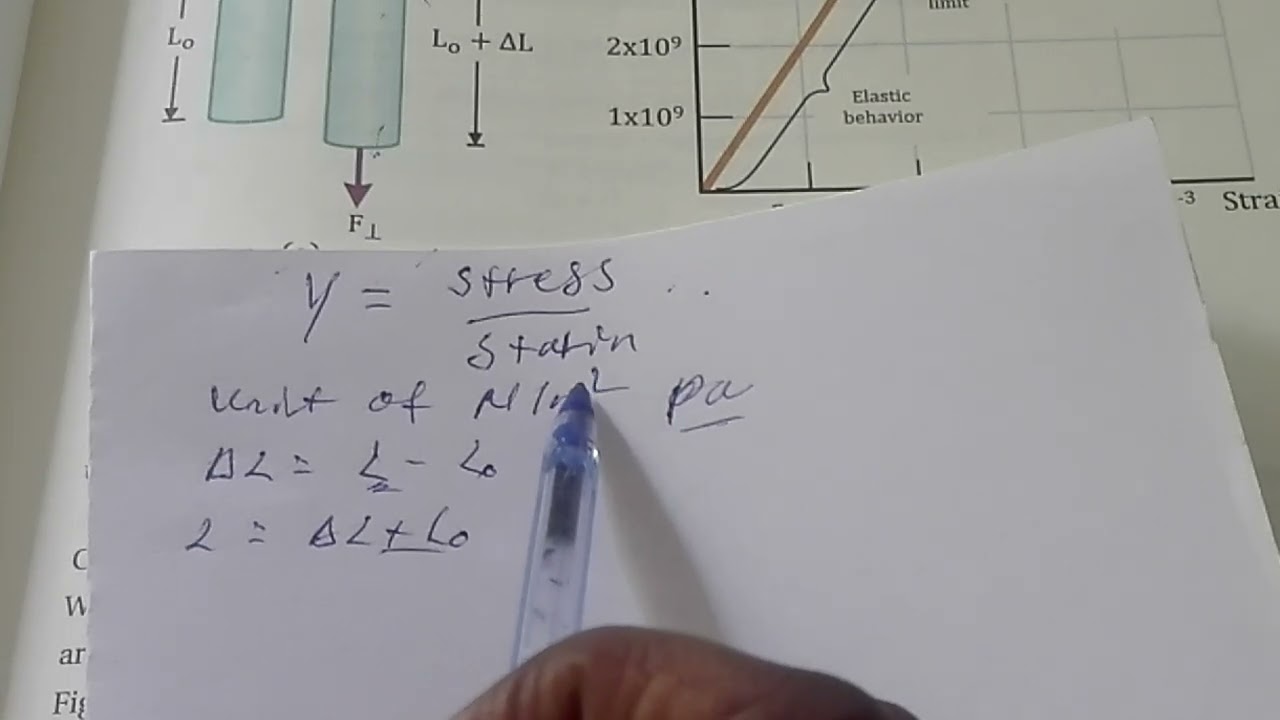 L₀
L₀ + ΔL
F⊥
limit
2x10⁹
1x10⁹
Elastic
behavior
-3 Stra
Y = stress ..
Starin
Unit of N/m² pa
ΔL = L - L₀
L = ΔL + L₀
C
W
ar
Fig